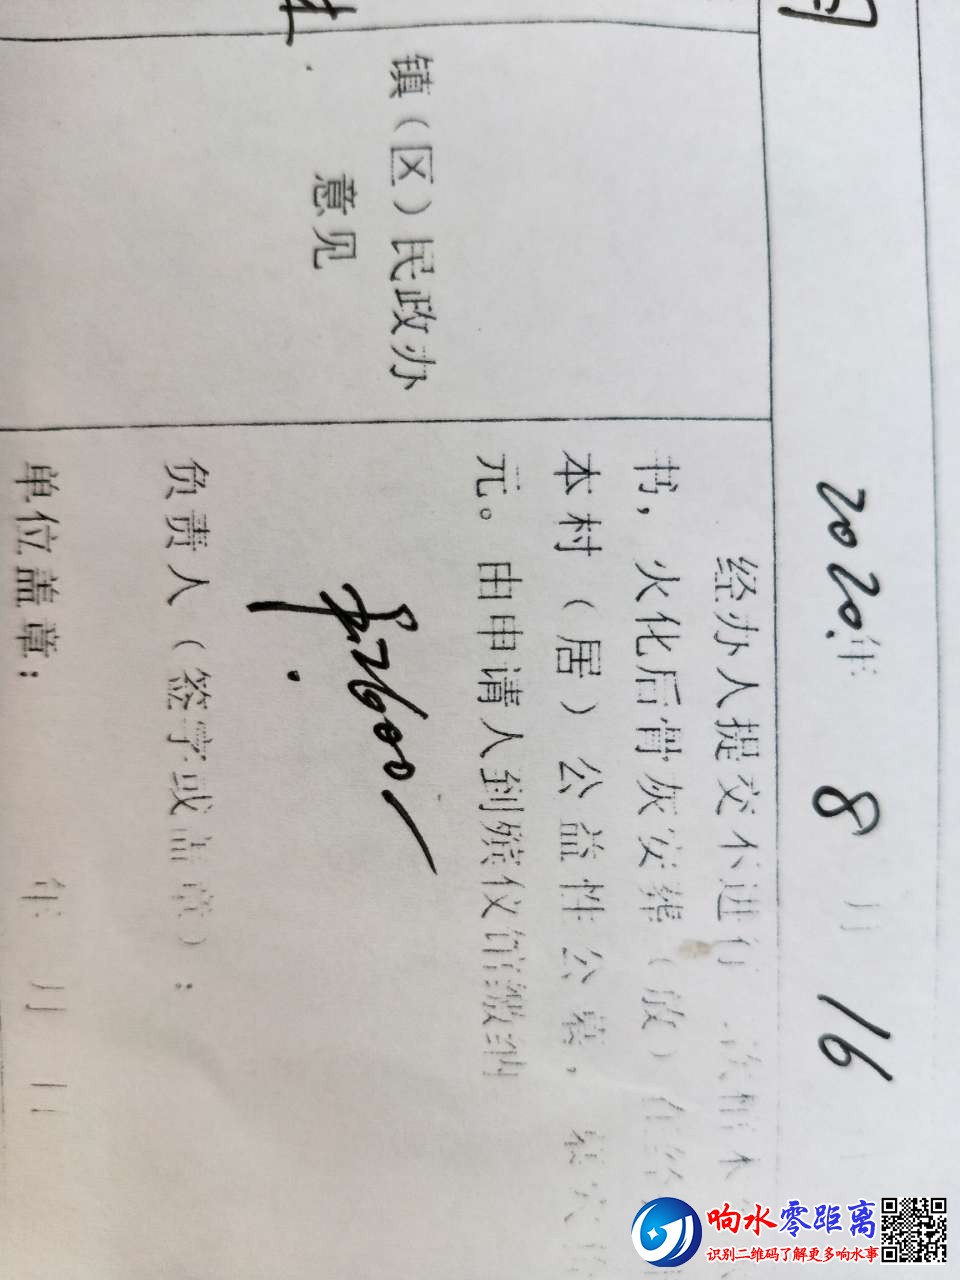 2020年 8月 16
镇（区）民政办
意见
经办人提交不进行二次棺木
书，火化后骨灰安葬（放）在
本村（居）公益性公墓，墓穴
元。由申请人到殡仪馆缴纳
负责人（签字或盖章）：
单位盖章：
年 月 日
响水零距离
识别二维码了解更多响水事